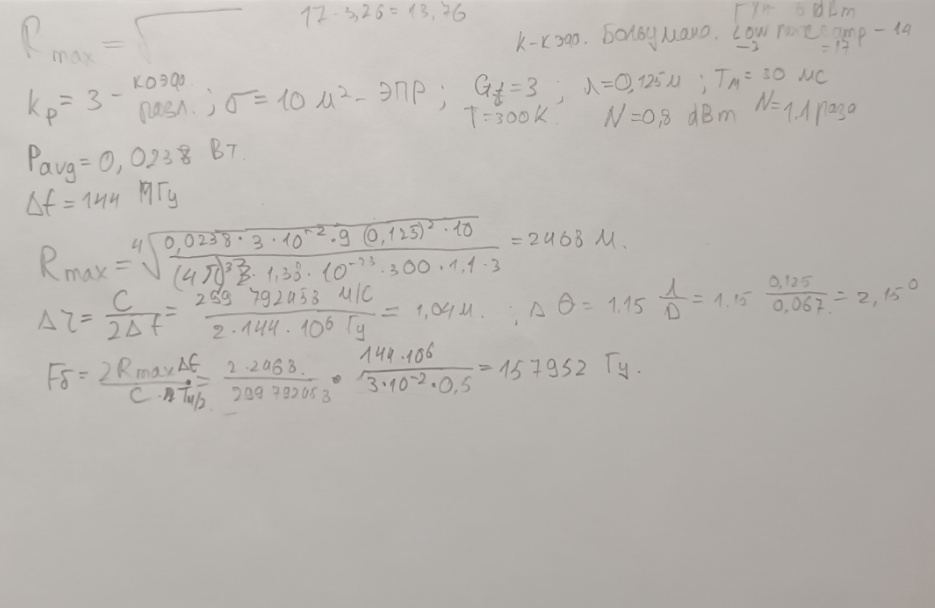 R max = √ 17 - 3,26 = 13,76
к - к эфф. Больцмана. Low noise amp - 14
-3 = 17
kр = 3 - коэфф. разл. ; σ = 10 м² - ЭПР ; Gt = 3 ; λ = 0,125м ; Tм = 30 мс
T = 300K. N = 0,8 dBm N = 1.1 раза
Pavg = 0,0238 Вт.
Δf = 144 МГц
Rmax = ⁴√(0,0238 · 3 · 10⁻² · 9 (0,125)² · 10 / (4π)³ · 1,38 · 10⁻²³ · 300 · 1,1 · 3) = 2468 м.
Δτ = C / 2Δf = 299 792458 м/с / 2 · 144 · 10⁶ Гц = 1,04м. ; Δθ = 1.15 λ/D = 1.15 0,125 / 0,067 = 2,15°
Fδ = 2Rmax Δf / C · Tм/2 = 2 · 2468. / 299 792053 · 144 · 10⁶ / 3 · 10⁻² · 0,5 = 157952 Гц.